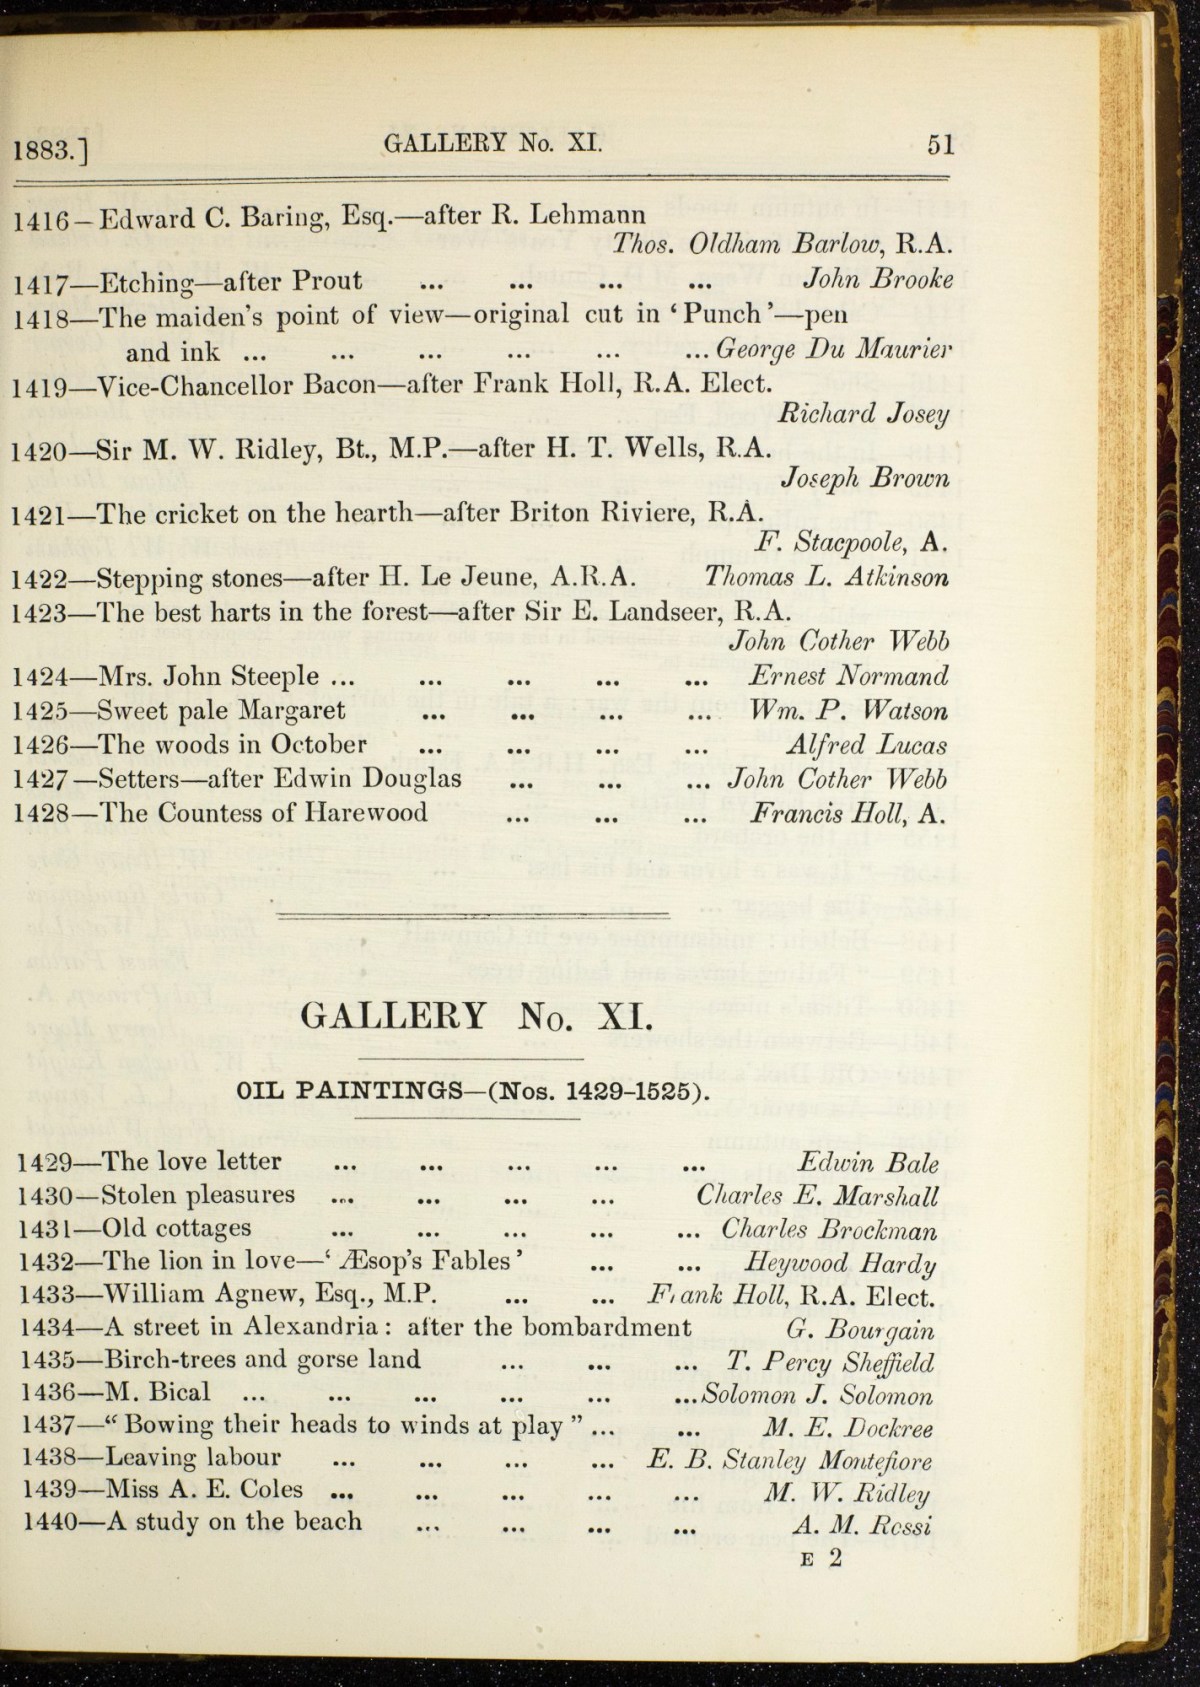 1883.] GALLERY No. XI. 51
1416–Edward C. Baring, Esq.—after R. Lehmann
Thos. Oldham Barlow, R.A.
1417—Etching—after Prout ... ... ... ... John Brooke
1418—The maiden's point of view—original cut in ‘Punch’—pen
and ink ... ... ... ... ... ... George Du Maurier
1419—Vice-Chancellor Bacon—after Frank Holl, R.A. Elect.
Richard Josey
1420—Sir M. W. Ridley, Bt., M.P.—after H. T. Wells, R.A.
Joseph Brown
1421—The cricket on the hearth—after Briton Riviere, R.A.
F. Stacpoole, A.
1422—Stepping stones—after H. Le Jeune, A.R.A. Thomas L. Atkinson
1423—The best harts in the forest—after Sir E. Landseer, R.A.
John Cother Webb
1424—Mrs. John Steeple ... ... ... ... ... Ernest Normand
1425—Sweet pale Margaret ... ... ... ... Wm. P. Watson
1426—The woods in October ... ... ... ... Alfred Lucas
1427—Setters—after Edwin Douglas ... ... ... John Cother Webb
1428—The Countess of Harewood ... ... ... Francis Holl, A.
GALLERY No. XI.
OIL PAINTINGS—(Nos. 1429-1525).
1429—The love letter ... ... ... ... ... Edwin Bale
1430—Stolen pleasures ... ... ... ... Charles E. Marshall
1431—Old cottages ... ... ... ... ... Charles Brockman
1432—The lion in love—‘Æsop's Fables’ ... ... Heywood Hardy
1433—William Agnew, Esq., M.P. ... ... Frank Holl, R.A. Elect.
1434—A street in Alexandria: after the bombardment G. Bourgain
1435—Birch-trees and gorse land ... ... ... T. Percy Sheffield
1436—M. Bical ... ... ... ... ... ...Solomon J. Solomon
1437—“Bowing their heads to winds at play” ... ... M. E. Dockree
1438—Leaving labour ... ... ... ... E. B. Stanley Montefiore
1439—Miss A. E. Coles ... ... ... ... ... M. W. Ridley
1440—A study on the beach ... ... ... ... A. M. Rossi
E 2